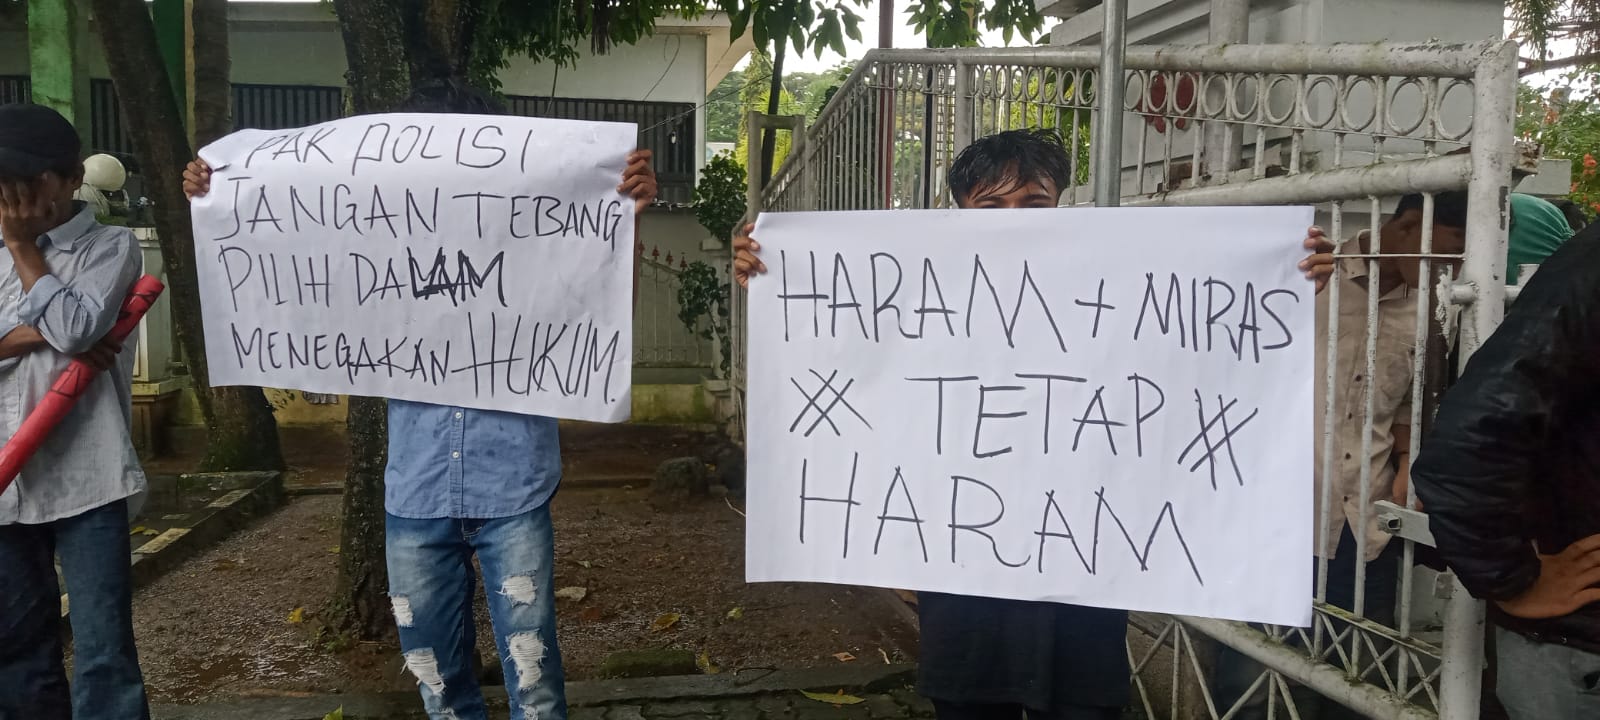 PAK POLISI
JANGAN TEBANG
PILIH DALAM
MENEGAKAN HUKUM.
HARAM + MIRAS
TETAP
HARAM